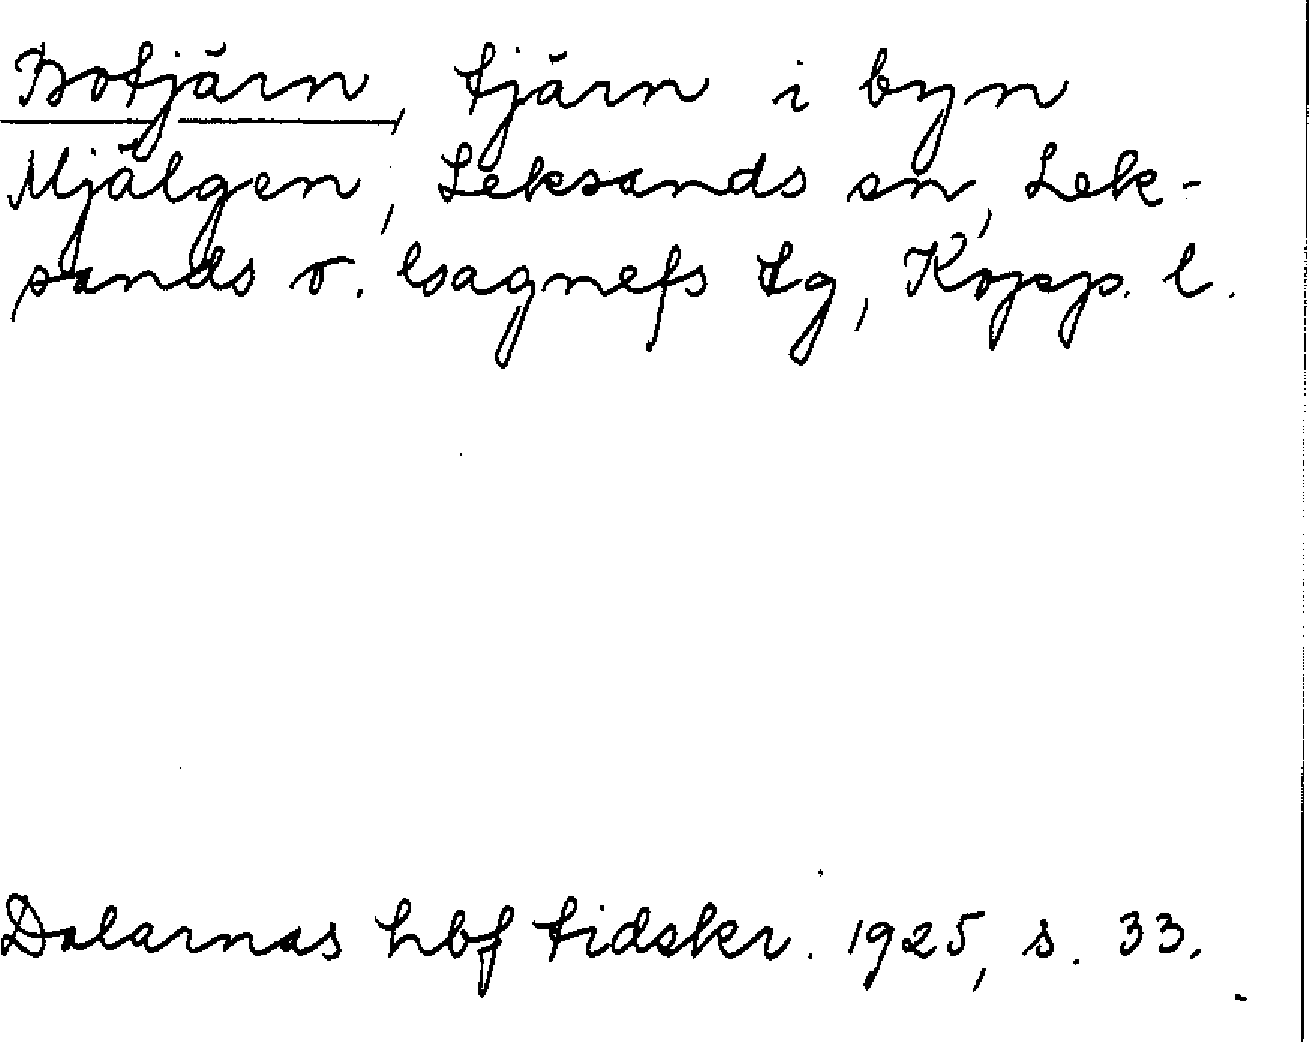 Botjärn, tjärn i byn
Mjälgen, Leksands sn, Lek-
sands o. Gagnefs tg, Kopp. l.
Dalarnas hbf tidskr. 1925, s. 33.